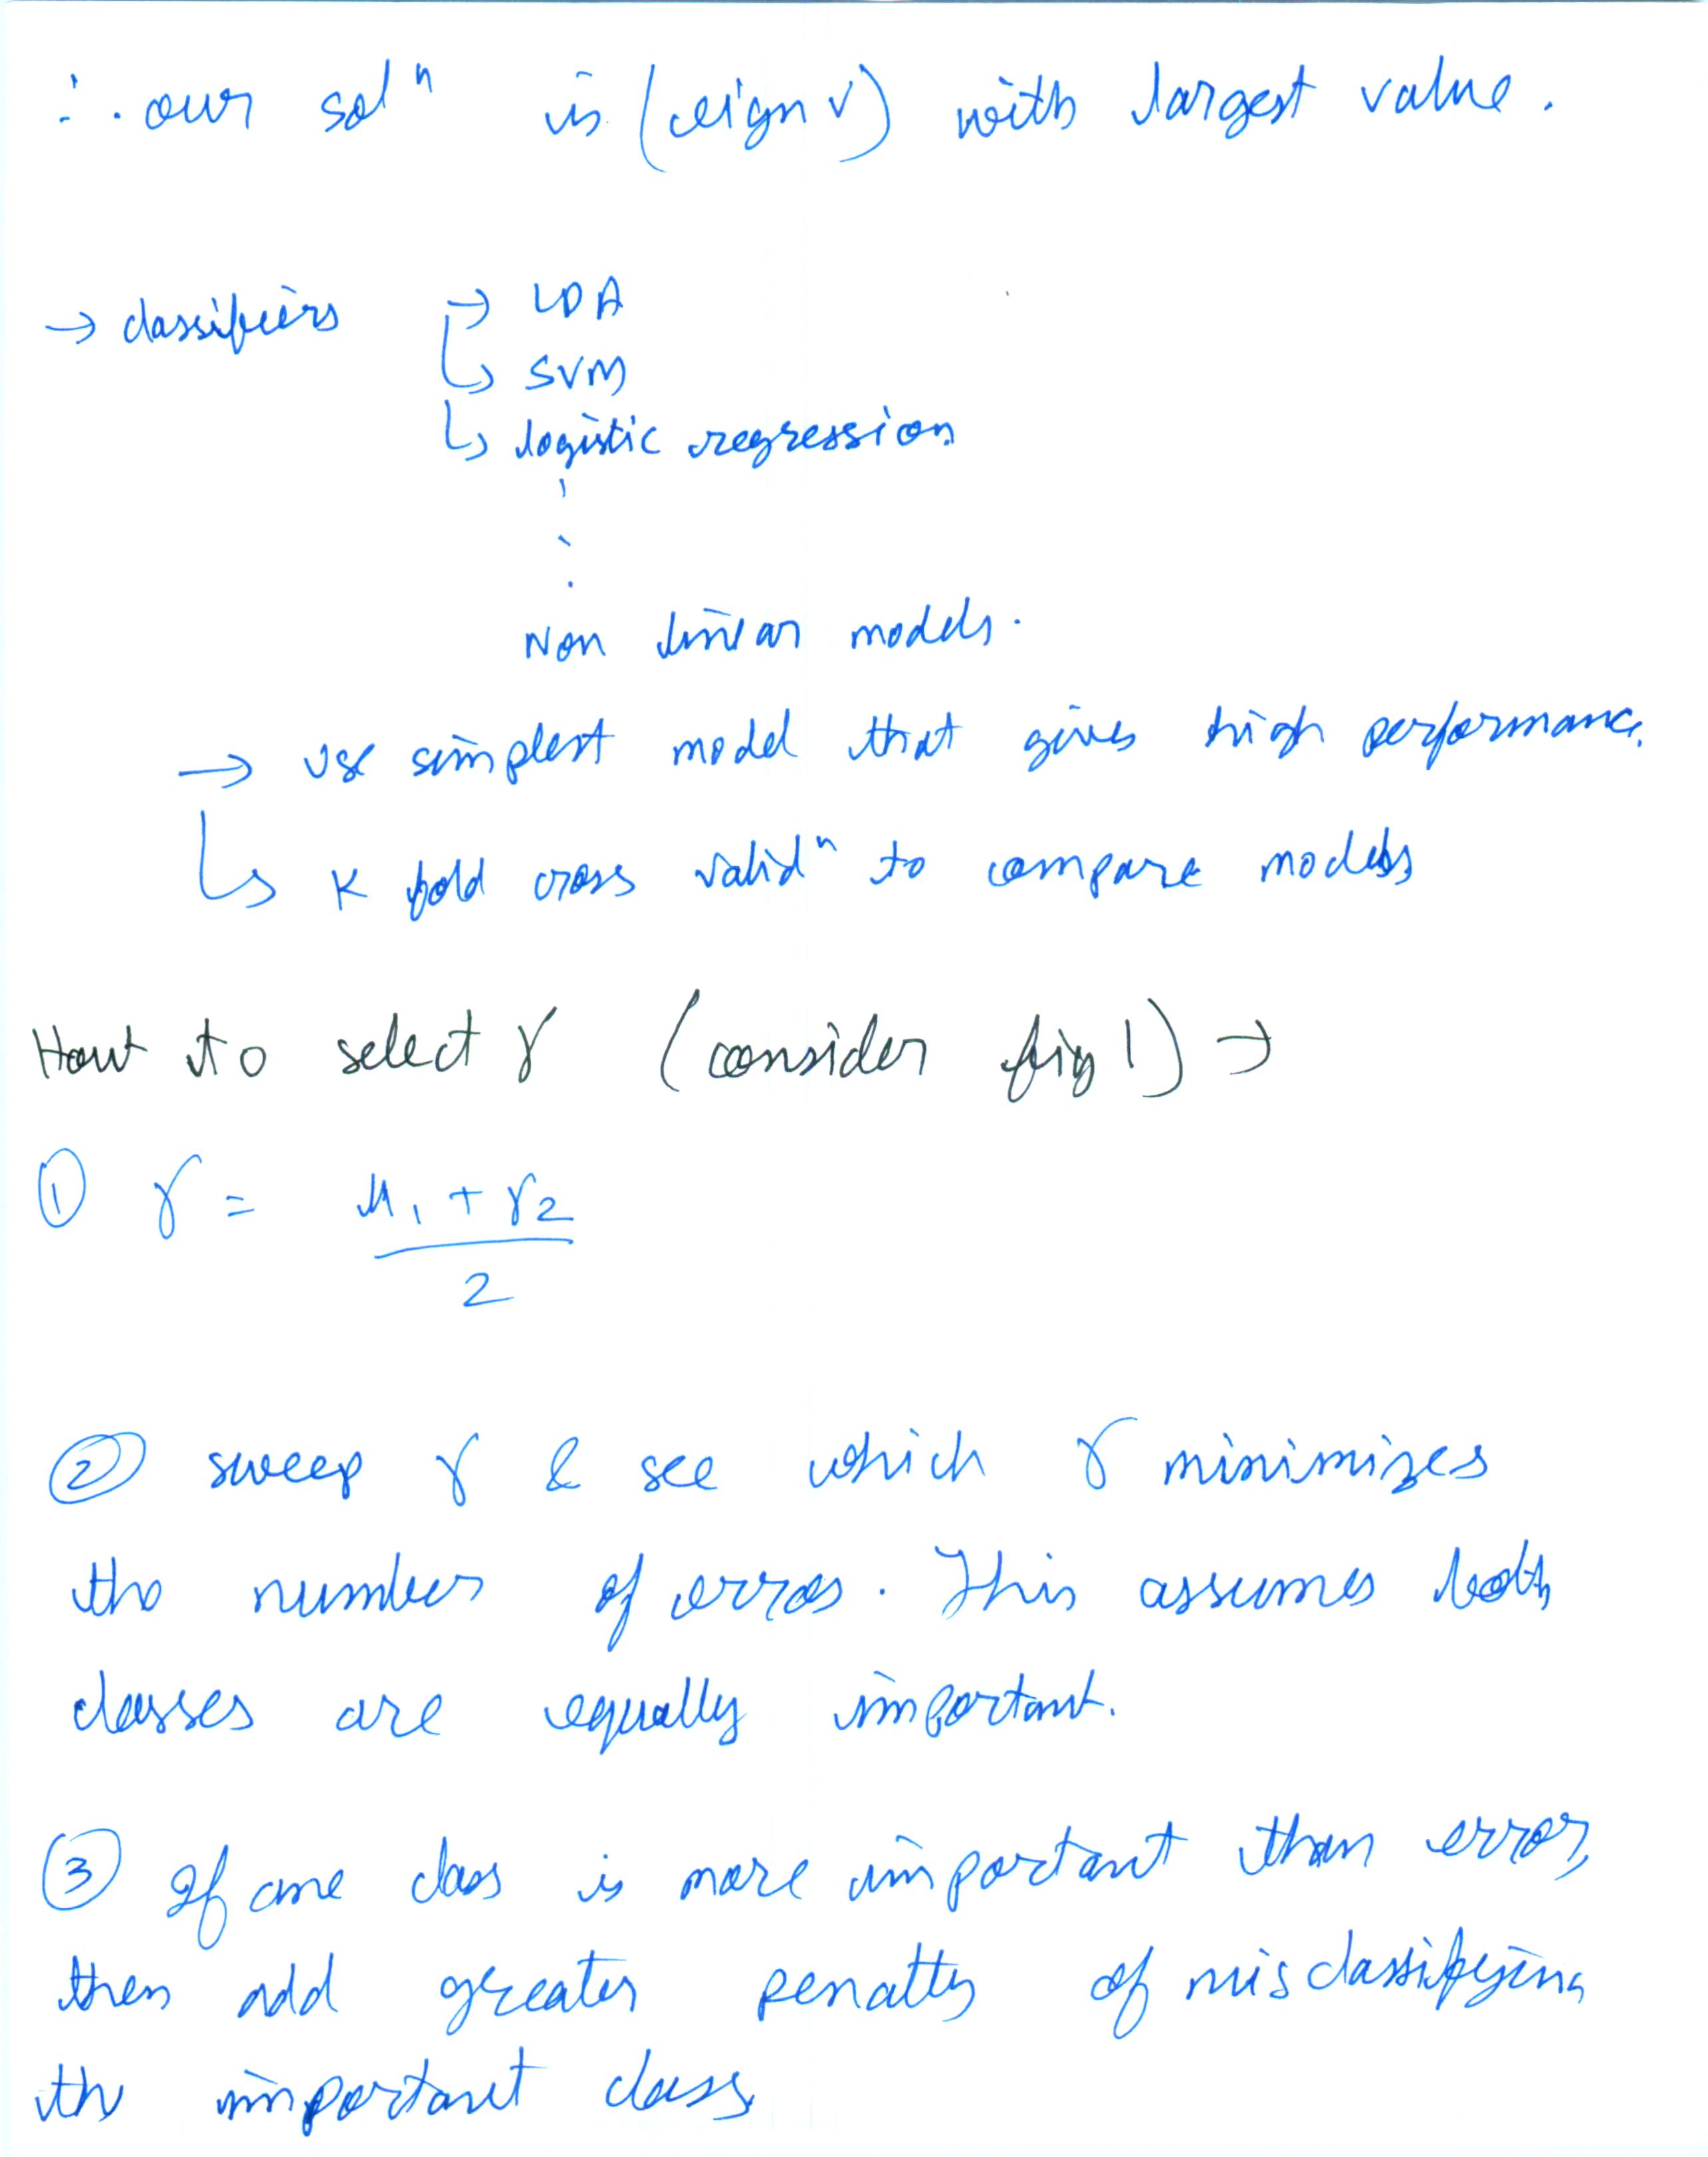 ∴ our solⁿ is (eign v) with largest value.
→ classifiers → LDA
↳ SVM
↳ logistic regression
⋮
Non linear models.
→ use simplest model that gives high performance.
↳ K fold cross validⁿ to compare models
How to select γ (consider fig 1) →
① γ = μ₁ + γ₂
2
② sweep γ & see which γ minimizes
the number of errors. This assumes both
classes are equally important.
③ If one class is more important than error,
then add greater penalty of misclassifying
the important class